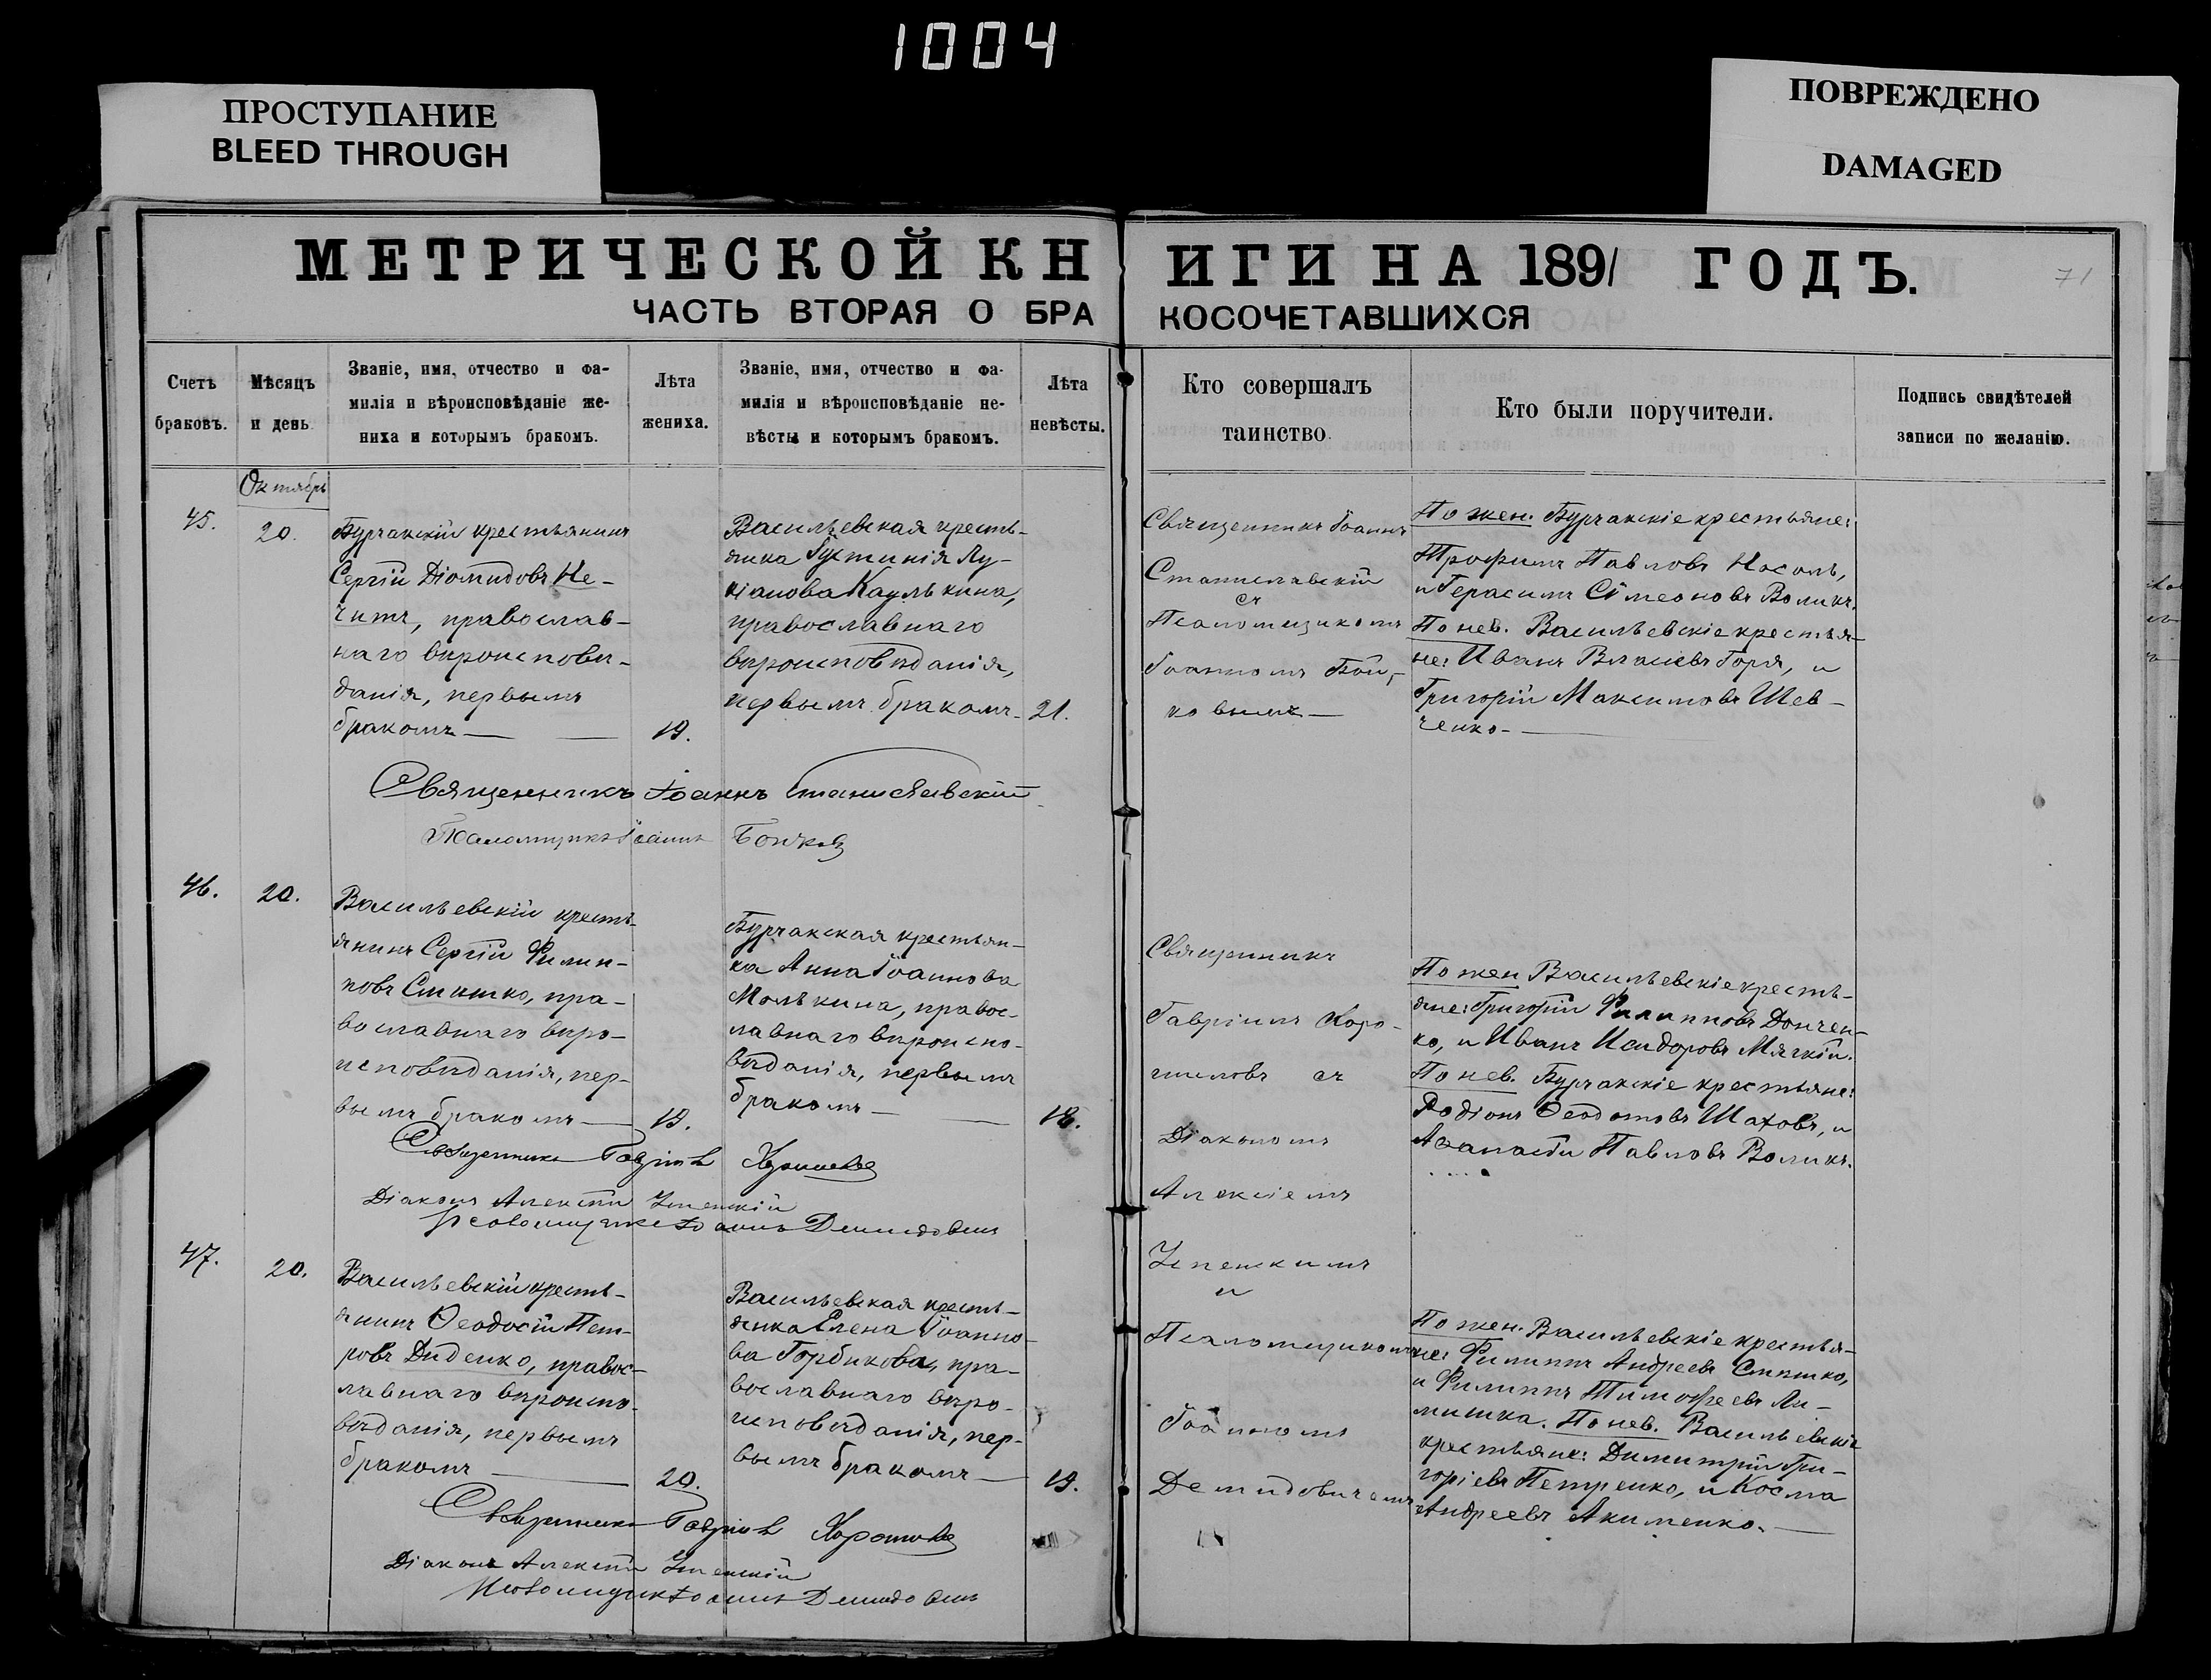 1004
ПРОСТУПАНИЕ
BLEED THROUGH
ПОВРЕЖДЕНО
DAMAGED
МЕТРИЧЕСКОЙ КНИГИ НА 1891 ГОДЪ.
71
ЧАСТЬ ВТОРАЯ О БРАКОСОЧЕТАВШИХСЯ
Счетъ
браковъ.
Мѣсяцъ
и день
Званіе, имя, отчество и фа-
милія и вѣроисповѣданіе же-
ниха и которымъ бракомъ.
Лѣта
жениха.
Званіе, имя, отчество и фа-
милія и вѣроисповѣданіе не-
вѣсты и которымъ бракомъ.
Лѣта
невѣсты.
Кто совершалъ
таинство.
Кто были поручители.
Подпись свидѣтелей
записи по желанію.
Октябрь
45.
20.
Бурчакскій крестьянинъ
Сергій Діомидовъ Не-
читъ, православ-
наго вѣроисповѣ-
данія, первымъ
бракомъ —
19.
Васильевская кресть-
янка Іустинія Лу-
кіанова Каулькина,
православнаго
вѣроисповѣданія,
первымъ бракомъ —
21.
Священникъ Іоаннъ
Станиславскій
съ
Псаломщикомъ
Іоанномъ Бой-
ковымъ —
По жен. Бурчакскіе крестьяне:
Трофимъ Павловъ Носоль,
и Герасимъ Сімеоновъ Воликъ.
По нев. Васильевскіе крестья-
не: Иванъ Власіевъ Горя, и
Григорій Максимовъ Шев-
ченко —
Священникъ Іоаннъ Станиславскій
Псаломщикъ Іоаннъ Бойковъ
46.
20.
Васильевскій кресть-
янинъ Сергій Филип-
повъ Сишко, пра-
вославнаго вѣро-
исповѣданія, пер-
вымъ бракомъ —
19.
Бурчакская крестьян-
ка Анна Іоаннова
Молькина, правос-
лавнаго вѣроиспо-
вѣданія, первымъ
бракомъ —
18.
Священникъ
Гавріилъ Хоро-
шиловъ съ
Діакономъ
Алексіемъ
Успенскимъ
и
Псаломщикомъ
Іоанномъ
Демидовичемъ
По жен. Васильевскіе кресть-
яне: Григорій Филипповъ Дончен-
ко, и Иванъ Исидоровъ Мягкій.
По нев. Бурчакскіе крестьяне:
Родіонъ Ѳеодотовъ Шаховъ, и
Аѳанасій Павловъ Воликъ.
Священникъ Гавріилъ Хорошиловъ
Діаконъ Алексій Успенскій
Псаломщикъ Іоаннъ Демидовичъ
47.
20.
Васильевскій кресть-
янинъ Ѳеодосій Пет-
ровъ Диденко, правос-
лавнаго вѣроиспо-
вѣданія, первымъ
бракомъ —
20.
Васильевская кресть-
янка Елена Іоанно-
ва Горбикова, пра-
вославнаго вѣро-
исповѣданія, пер-
вымъ бракомъ —
19.
По жен. Васильевскіе крестья-
не: Филиппъ Андреевъ Сишко,
и Филиппъ Тимофеевъ Ли-
мишка. По нев. Васильевскіе
крестьяне: Димитрій Гри-
горіевъ Петренко, и Косма
Андреевъ Акименко. —
Священникъ Гавріилъ Хорошиловъ
Діаконъ Алексій Успенскій
Псаломщикъ Іоаннъ Демидовичъ